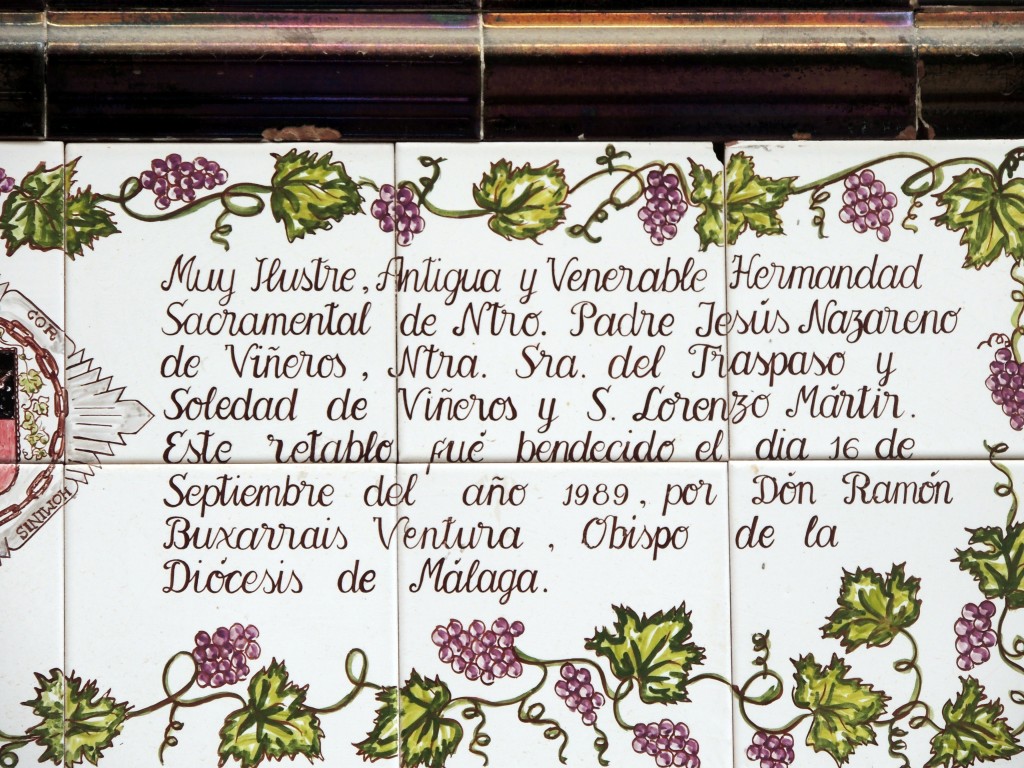 Muy Ilustre, Antigua y Venerable Hermandad
Sacramental de Ntro. Padre Jesús Nazareno
de Viñeros, Ntra. Sra. del Traspaso y
Soledad de Viñeros y S. Lorenzo Mártir.
Este retablo fué bendecido el dia 16 de
Septiembre del año 1989, por Dón Ramón
Buxarrais Ventura, Obispo de la
Diócesis de Málaga.
COR
HOMINIS